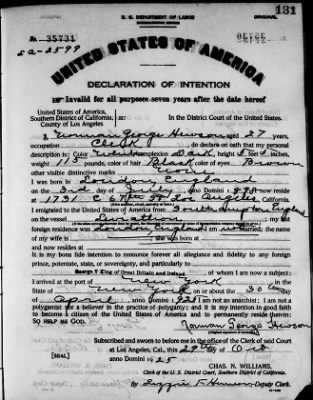 131
U. S. DEPARTMENT OF LABOR
ORIGINAL
No. 35731
UNITED STATES OF AMERICA
DECLARATION OF INTENTION
Invalid for all purposes seven years after the date hereof
United States of America,
Southern District of California,
County of Los Angeles
ss:
In the District Court of the United States.
I, Norman George Hewson, aged 27 years,
occupation Clerk, do declare on oath that my personal
description is: Color White, complexion Dark, height 5 feet inches,
weight 115 pounds, color of hair Black, color of eyes Brown
other visible distinctive marks None
I was born in London England
on the 3rd day of July, anno Domini 1898; I now reside
at 1031 C. Los Angeles, California.
I emigrated to the United States of America from Southampton England
on the vessel; my last
foreign residence was London, England; I am married; the name
of my wife is; she was born at
and now resides at
It is my bona fide intention to renounce forever all allegiance and fidelity to any foreign
prince, potentate, state, or sovereignty, and particularly to
George V King of Great Britain and Ireland, of whom I am now a subject;
I arrived at the port of New York, in the
State of New York, on or about the 30 day
of April, anno Domini 1921; I am not an anarchist; I am not a
polygamist nor a believer in the practice of polygamy; and it is my intention in good faith
to become a citizen of the United States of America and to permanently reside therein:
SO HELP ME GOD.
Norman George Hewson
Subscribed and sworn to before me in the office of the Clerk of said Court
[SEAL]
at Los Angeles, Cal., this 29th day of Oct
anno Domini 1925
CHAS. N. WILLIAMS,
Clerk of the U. S. District Court, Southern District of California.
By, Deputy Clerk.